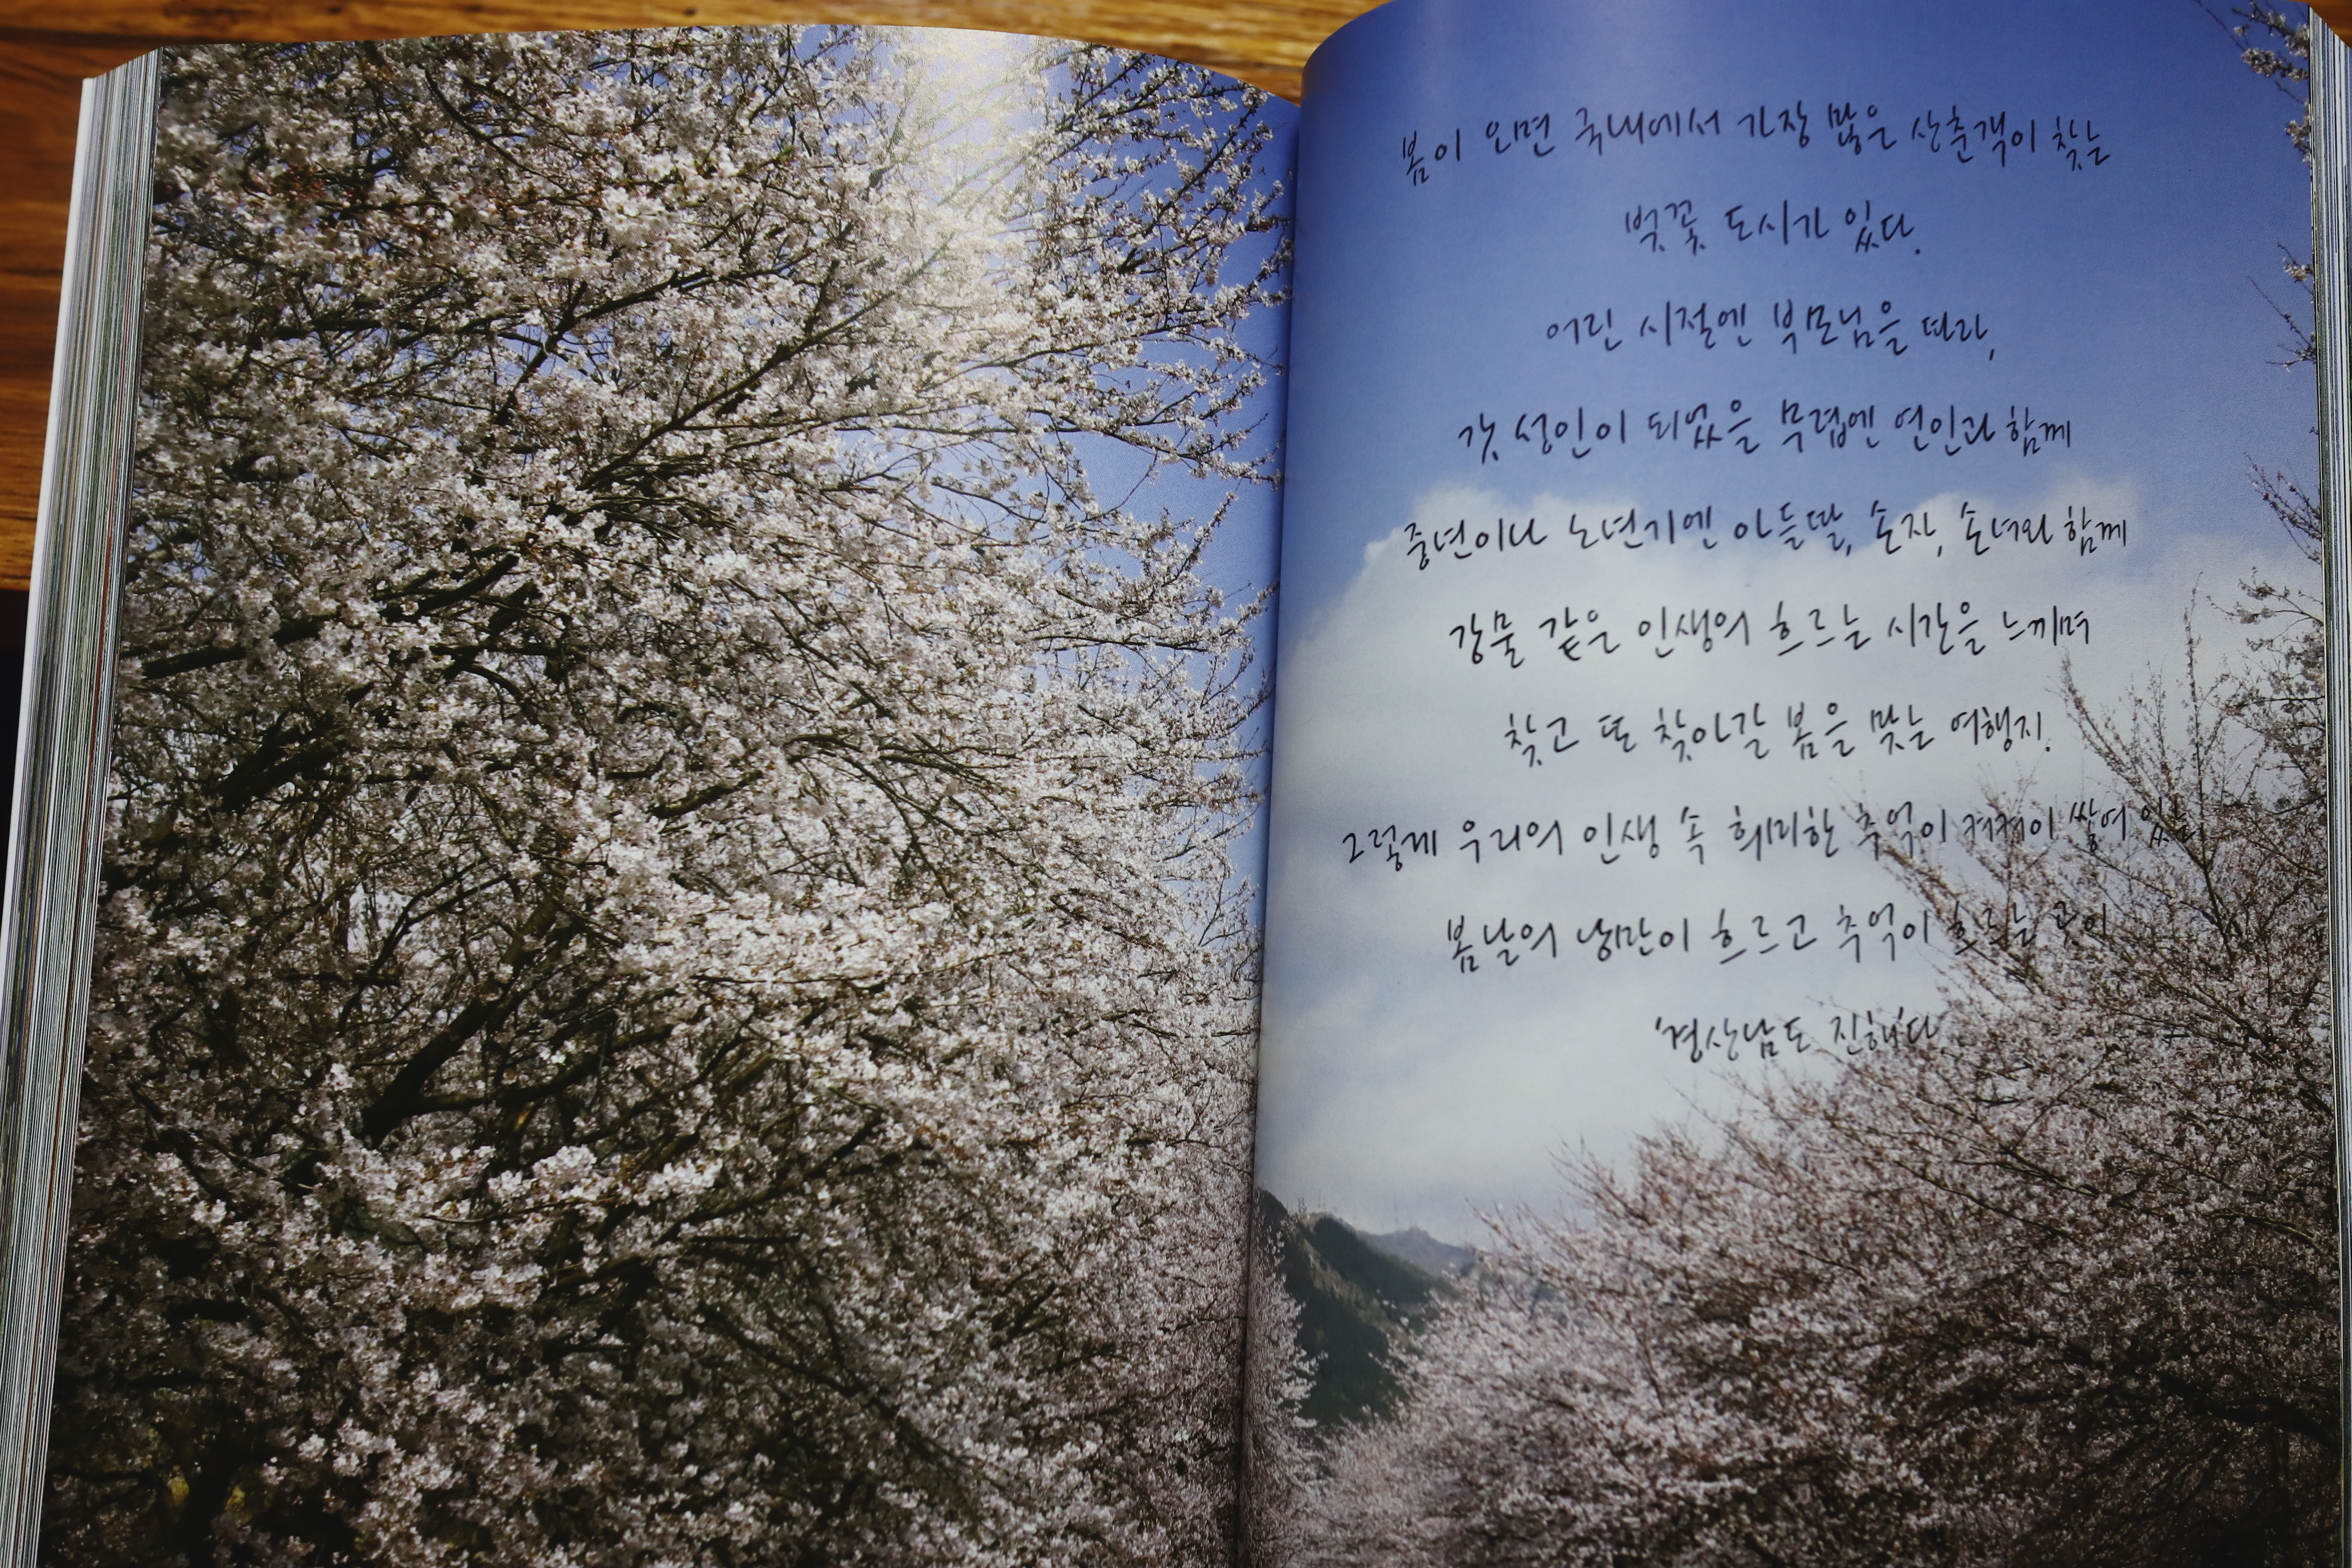 봄이 오면 국내에서 가장 많은 상춘객이 찾는
벚꽃 도시가 있다.
어린 시절엔 부모님을 따라,
갓 성인이 되었을 무렵엔 연인과 함께
중년이나 노년기엔 아들딸, 손자, 손녀와 함께
강물 같은 인생의 흐르는 시간을 느끼며
찾고 또 찾아갈 봄을 맞는 여행지.
그렇게 우리의 인생 속 희미한 추억이 켜켜이 쌓여 있는
봄날의 낭만이 흐르고 추억이 흐르는 곳이
'경상남도 진해'다.